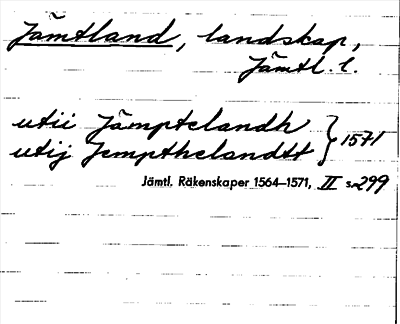 Jämtland, landskap,
Jämtl l.
utii Jämptelandh
utij Jempthelandtt } 1571
Jämtl. Räkenskaper 1564—1571, II s. 299